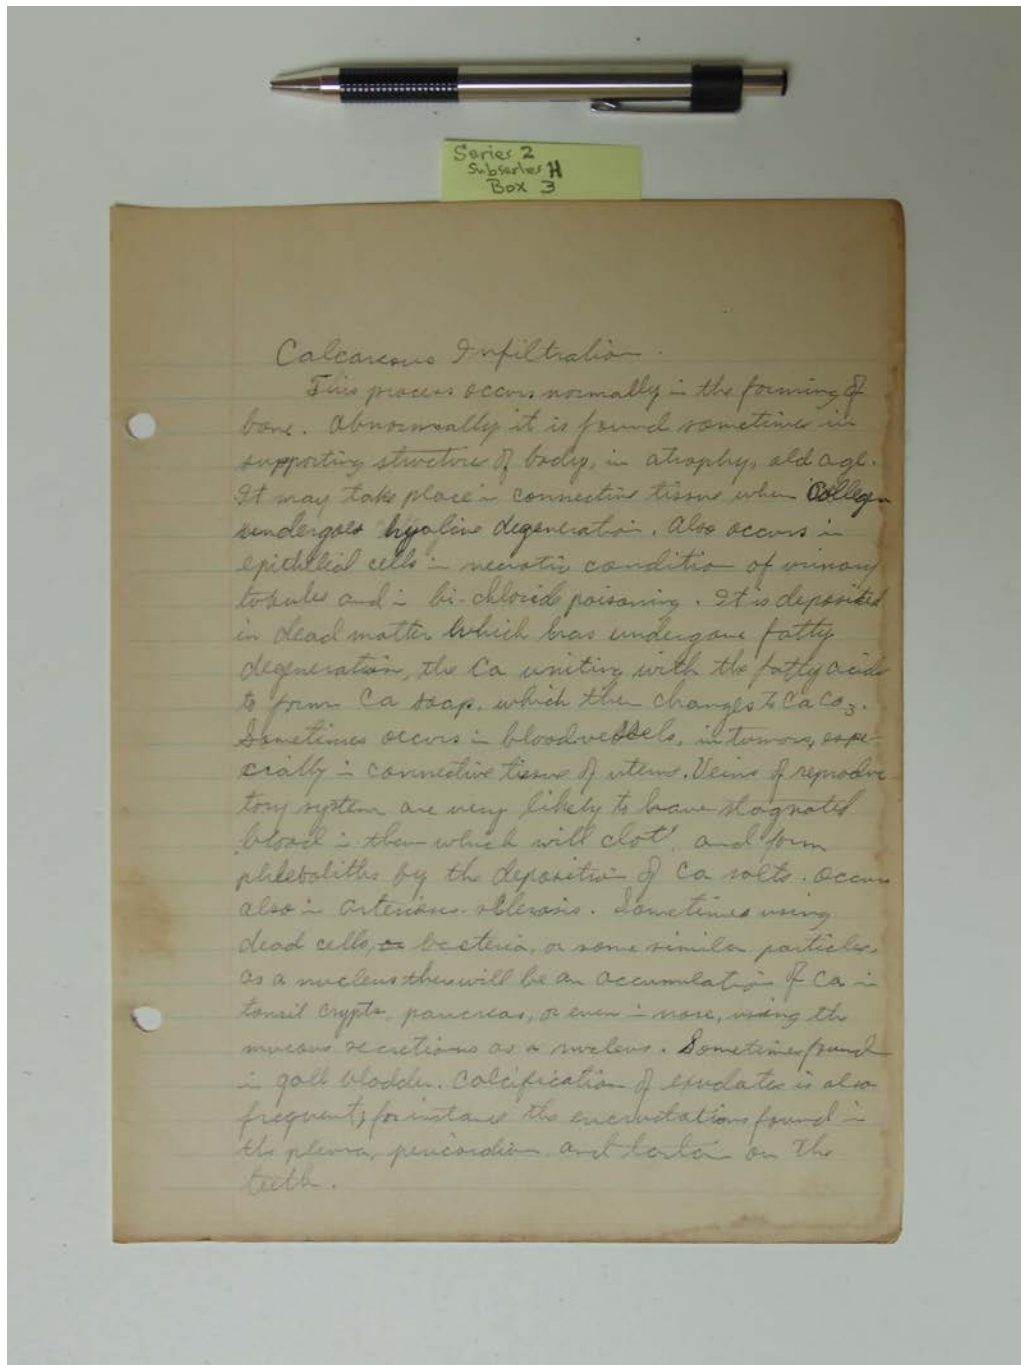 Series 2
Subseries H
Box 3
Calcareous Infiltration.
This process occurs normally in the forming of
bone. Abnormally it is found sometimes in
supporting structure of body, in atrophy, old age.
It may take place in connective tissue when collagen
undergoes hyaline degeneration. Also occurs in
epithelial cells in necrotic condition of urinary
tubules and in bi-chloride poisoning. It is deposited
in dead matter which has undergone fatty
degeneration, the Ca uniting with the fatty acids
to form Ca soap, which then changes to CaCO3.
Sometimes occurs in bloodvessels, in tumors, espe-
cially in connective tissue of uterus. Veins of reproduc
tory system are very likely to have stagnated
blood in them which will clot, and form
phleboliths by the deposition of Ca salts. Occurs
also in arterious sclerosis. Sometimes using
dead cells, bacteria, or some similar particles
as a nucleus there will be an accumulation of Ca in
tonsil crypts, pancreas, or even in nose, using the
mucous secretions as a nucleus. Sometimes found
in gall bladder. Calcification of exudates is also
frequent; for instance the encrustations found in
the pleura, pericardium and tartar on the
teeth.